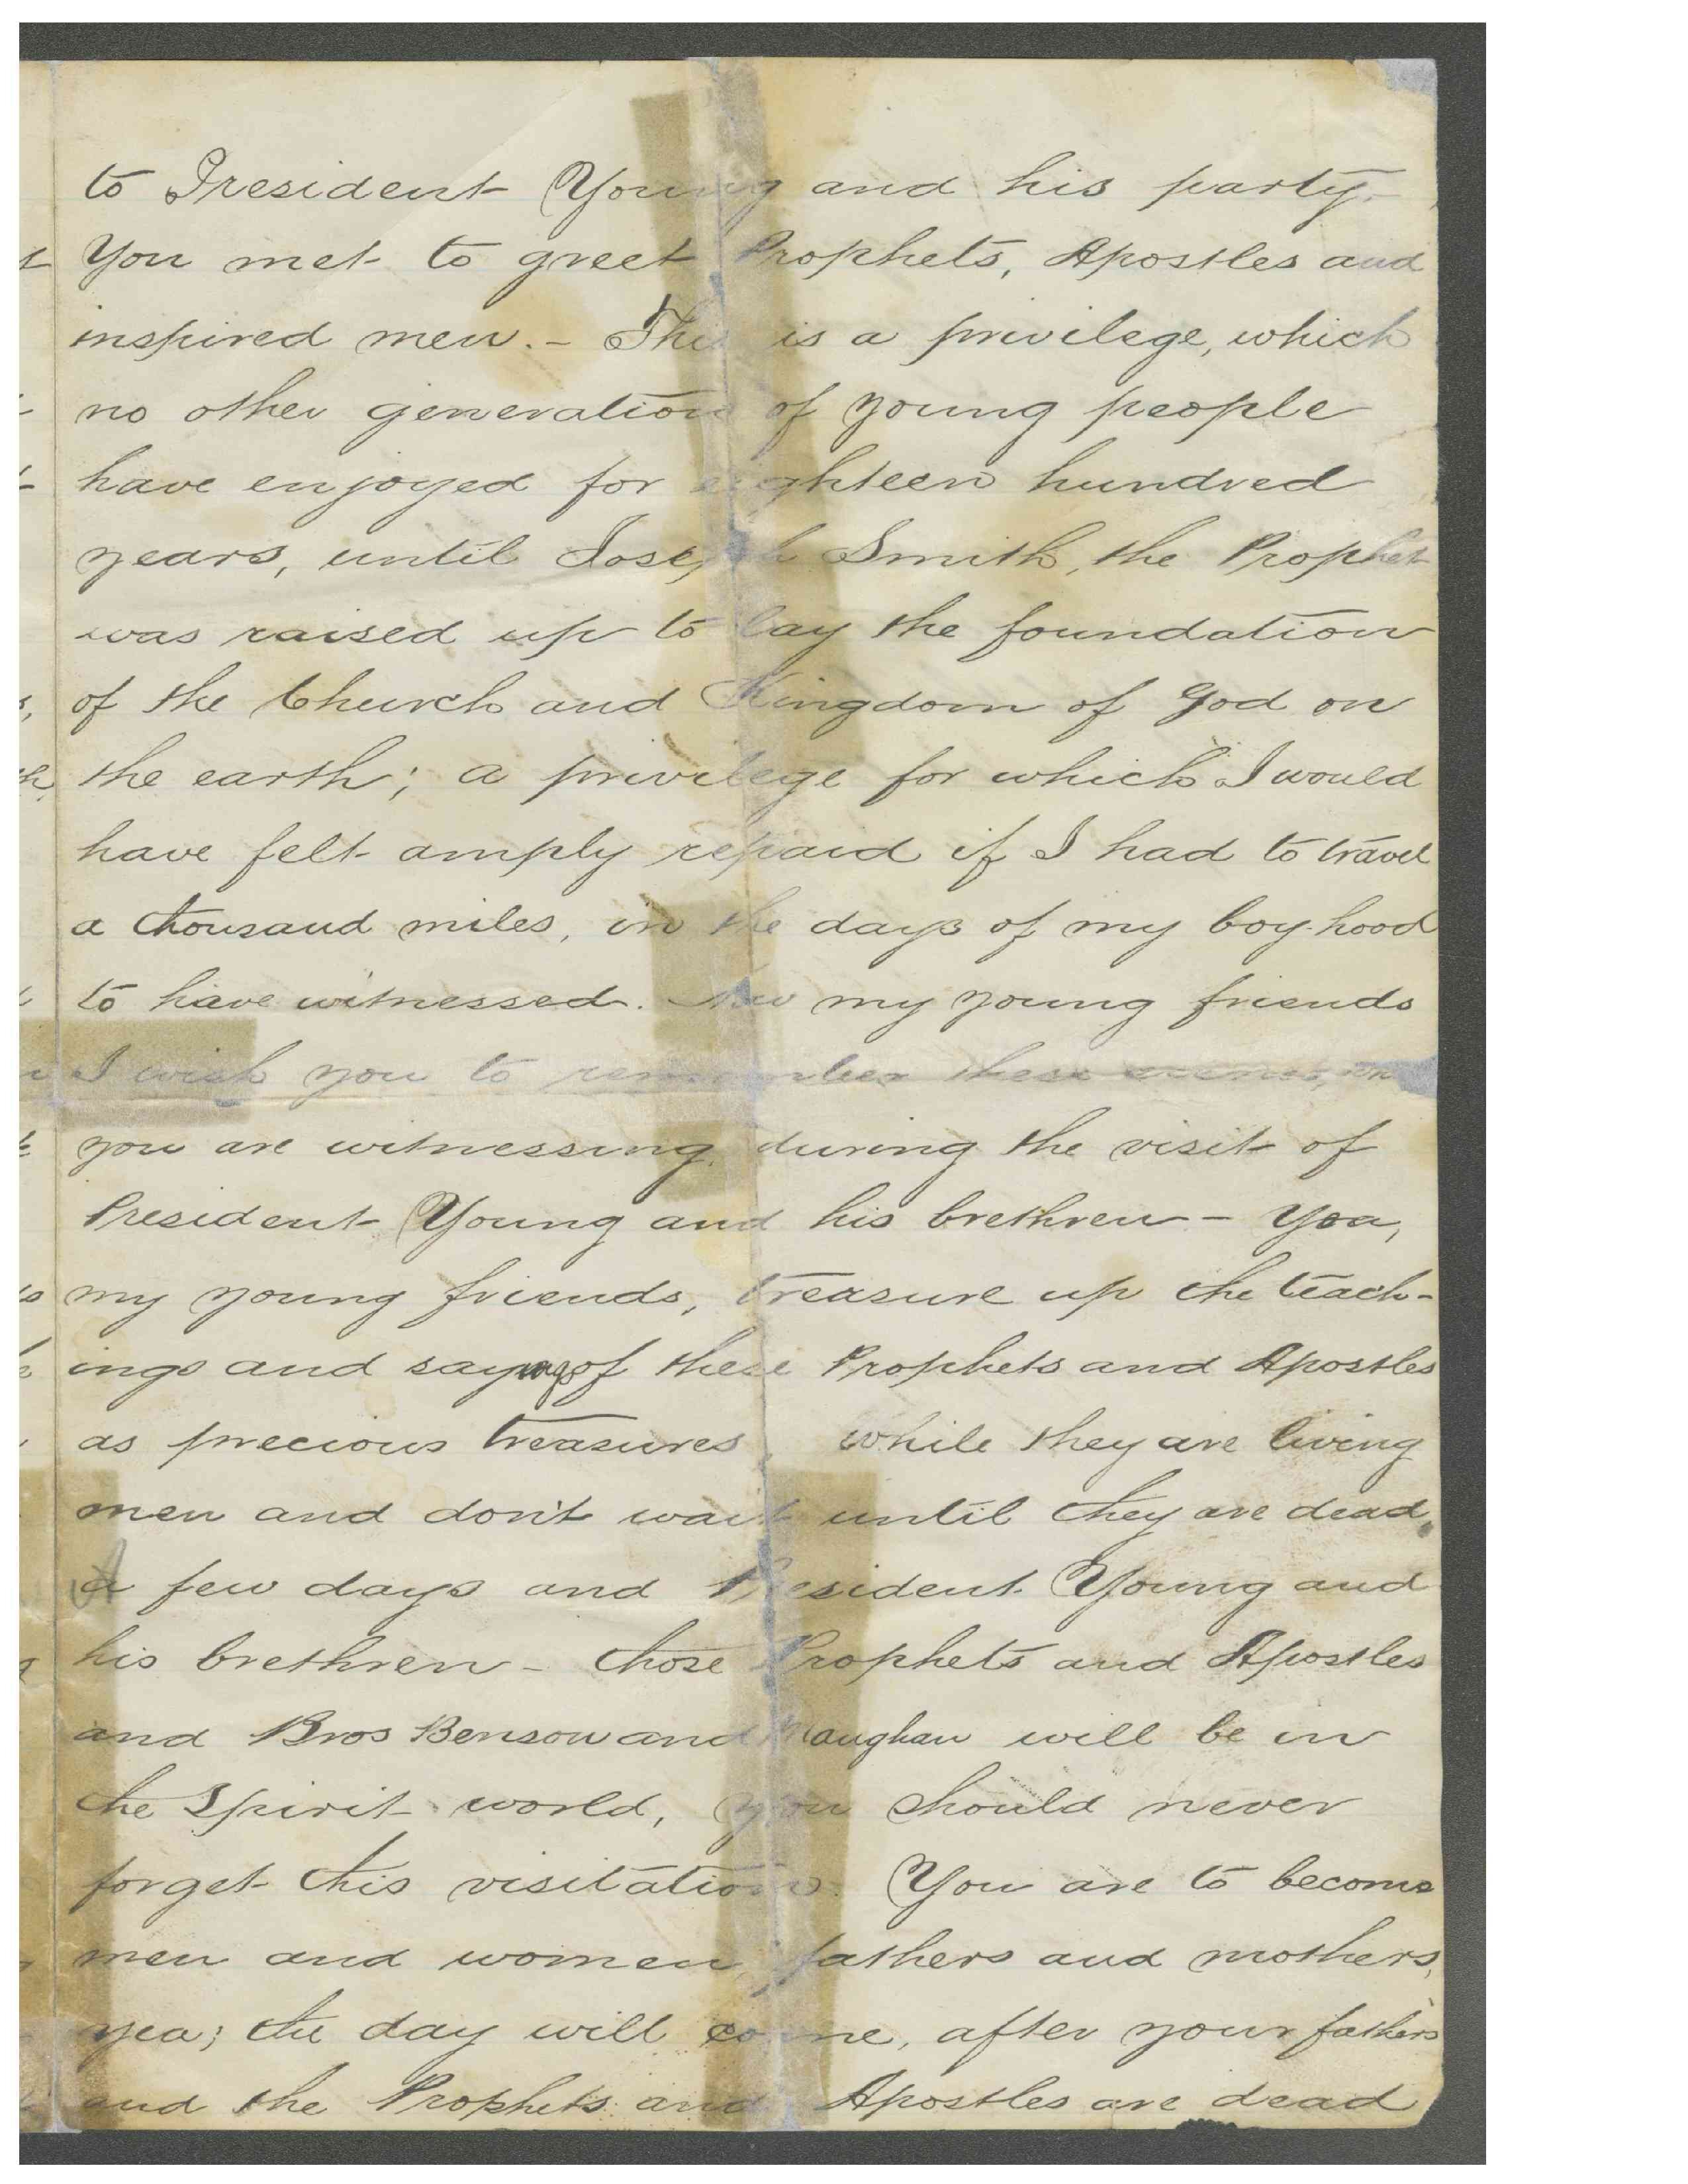 to President Young and his party.
You met to greet Prophets, Apostles and
inspired men. - This is a privilege, which
no other generation of young people
have enjoyed for eighteen hundred
years, until Joseph Smith, the Prophet
was raised up to lay the foundation
of the Church and Kingdom of God on
the earth; a privilege for which I would
have felt amply repaid if I had to travel
a thousand miles, in the days of my boy-hood
to have witnessed. Now my young friends
I wish you to remember these
you are witnessing, during the visit of
President Young and his brethren - Yea,
my young friends, treasure up the teach-
ings and sayings of these Prophets and Apostles
as precious treasures, while they are living
men and don't wait until they are dead.
A few days and President Young and
his brethren - those Prophets and Apostles
and Bros Benson and Maughan will be in
the Spirit world, you should never
forget this visitation. You are to become
men and women, fathers and mothers,
yea; the day will come, after your fathers
and the Prophets and Apostles are dead